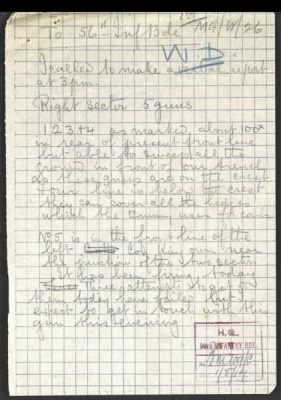 To 56th Inf Bde
MG/W/26
W.D.
I called to make a verbal report
at 3pm.
Right sector 5 guns
1 2 3 + 4 as marked, about 100x
in rear of present front line
but able to sweep all the
ground in front of our trench
as these guns are on the crest
+ our line is below the crest
they can cover all the
which the enemy uses to
No 5 is in the front line of the
left Company near
the junction of the two
It has been firing today
Three attempts to get
them today have failed but I
expect to get in touch with this
gun this evening
H.Q.
INFANTRY BDE.